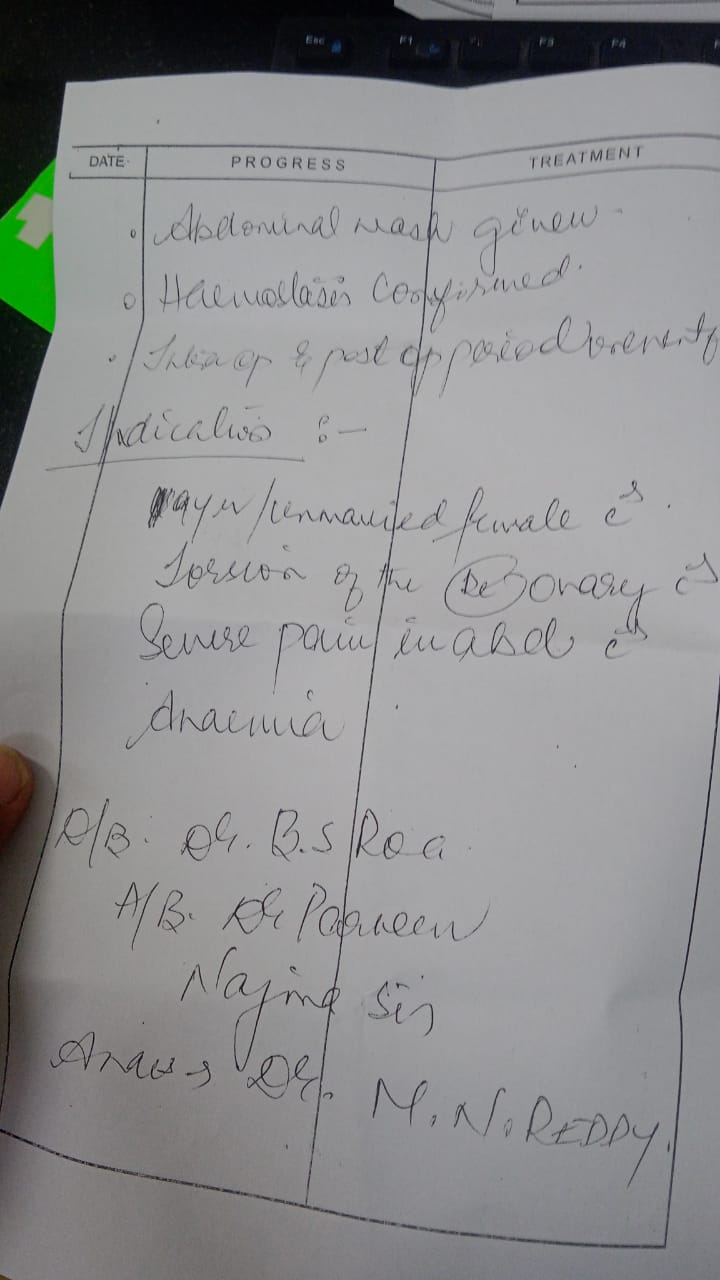 Esc F1 F2 F3 F4
DATE PROGRESS TREATMENT
Abdominal wash given
Haemostasis Confirmed.
& post op period
Indication :-
/unmarried female c̄
Torsion of the ovary c̄
Severe pain in abd c̄
Anaemia
O/B. Dr. B.S Roa
A/B. Dr Parveen
Najma Sis
Dr. M.N.REDDY.